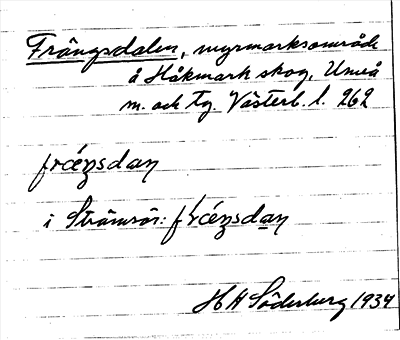 Frängsdalen, myrmarksområde
å Håkmark skog, Umeå
m. och tg. Västerb. l. 262
fréŋsdaŋ
i Strömsör: fréŋsdaŋ
H H Söderburg 1934